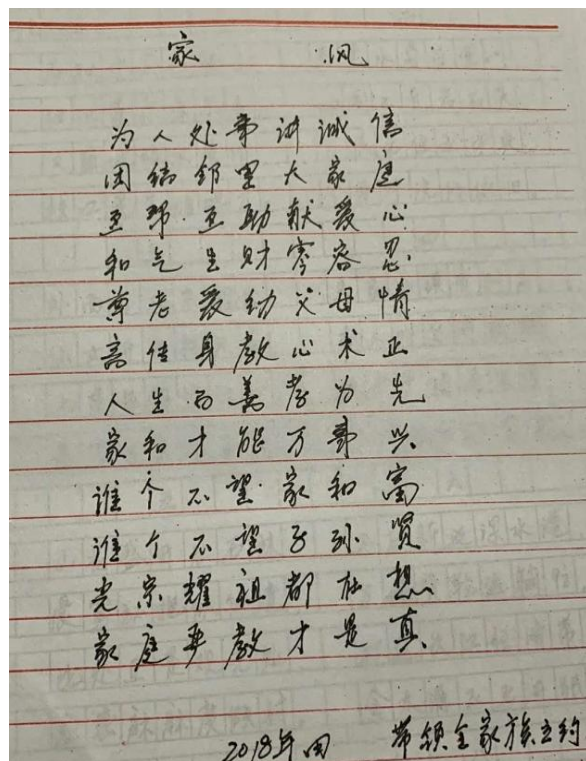 家 风
为人处事讲诚信
团结邻里大家庭
互帮互助献爱心
和气生财宽容忍
尊老爱幼父母情
言传身教心术正
人生百善孝为先
家和才能万事兴
谁个不望家和富
谁个不望子孙贤
光宗耀祖都在想
家庭要教才是真
2018年 带领全家族立约